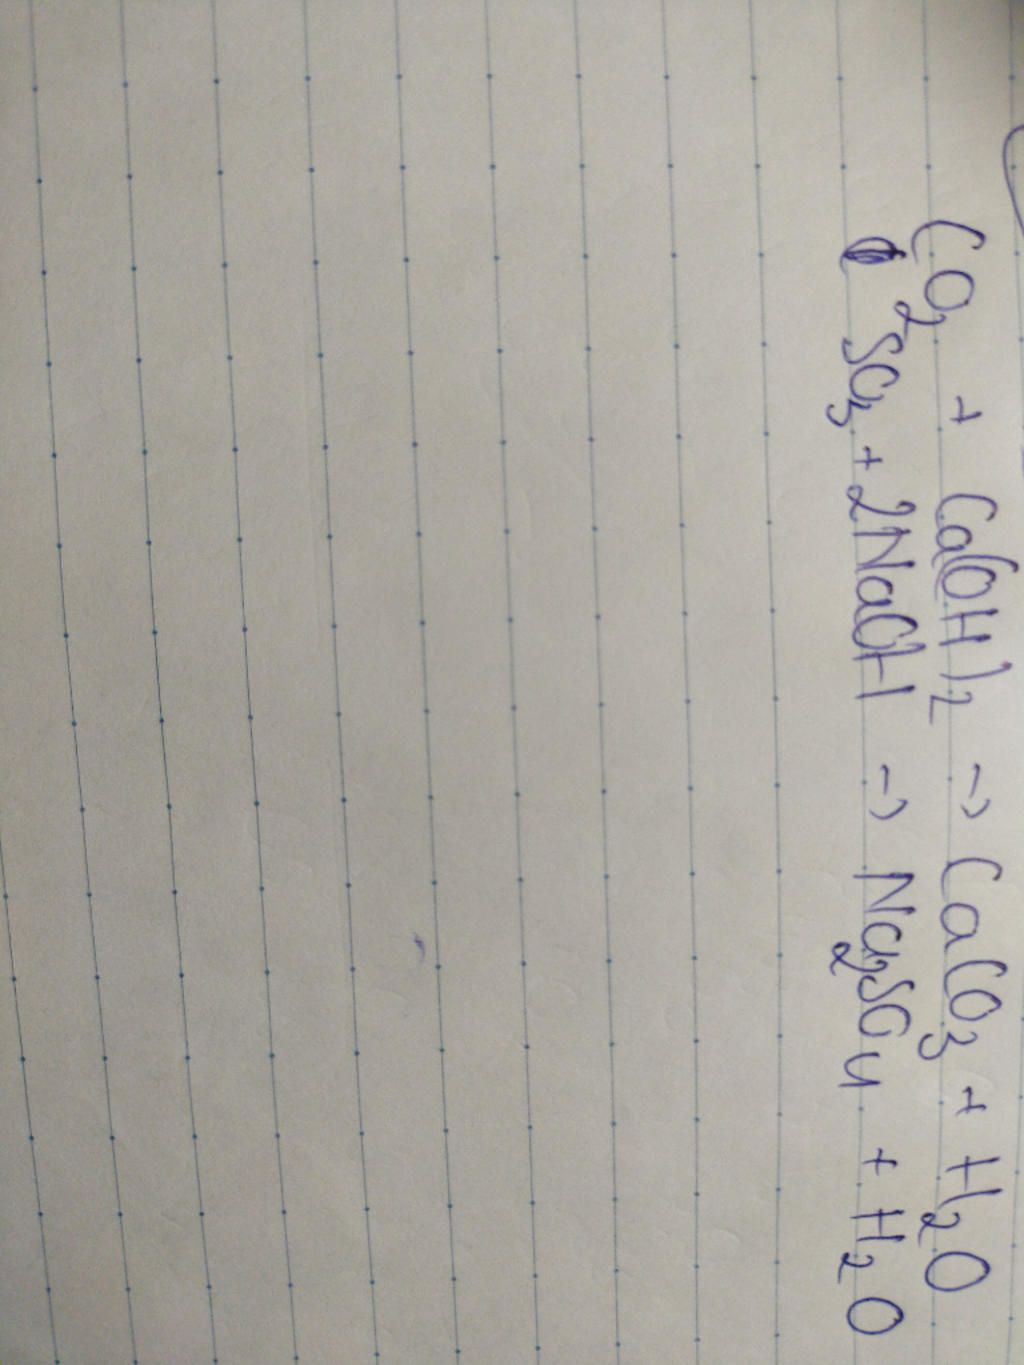 CO₂ + Ca(OH)₂ → CaCO₃ + H₂O
SO₃ + 2NaOH → Na₂SO₄ + H₂O